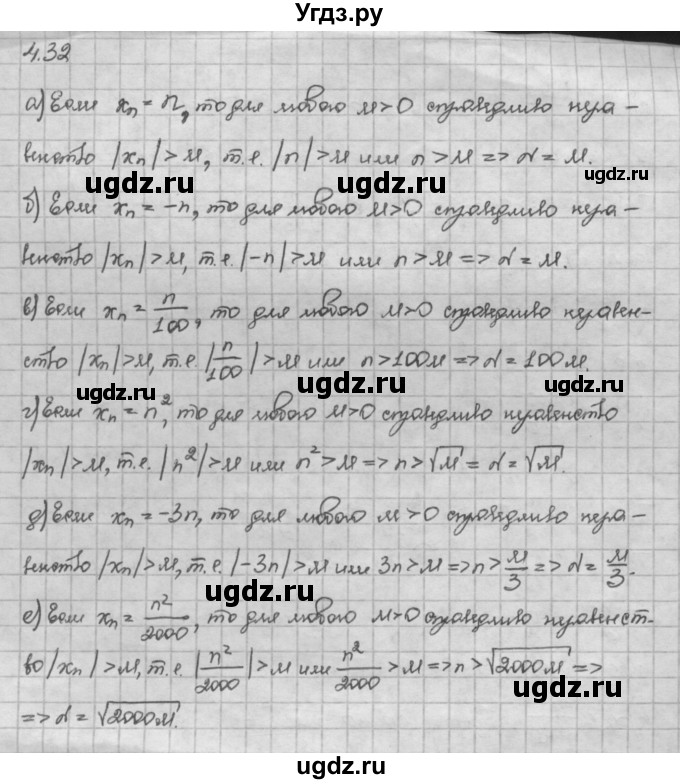 Угдз.ру
4.32
а) Если xₙ = n, то для любого м>0 справедливо нера-
венство |xₙ|>м, т.е. |n|>м или n>м => α = м.
ugdz.ru ugdz.ru
ugdz.ru
б) Если xₙ = -n, то для любого м>0 справедливо нера-
венство |xₙ|>м, т.е. |-n|>м или n>м => α = м.
в) Если xₙ = n/100, то для любого м>0 справедливо неравен-
ство |xₙ|>м, т.е. |n/100|>м или n>100м => α = 100м.
ugdz.ru ugdz.ru
г) Если xₙ = n², то для любого м>0 справедливо неравенство
|xₙ|>м, т.е. |n²|>м или n²>м => n>√м = α = √м.
д) Если xₙ = -3n, то для любого м>0 справедливо нера-
венство |xₙ|>м, т.е. |-3n|>м или 3n>м => n>м/3 => α = м/3.
ugdz.ru
е) Если xₙ = n²/2000, то для любого м>0 справедливо неравенст-
во |xₙ|>м, т.е. |n²/2000|>м или n²/2000>м => n>√2000м =>
ugdz.ru
=> α = √2000м.
ugdz.ru
ugdz.ru